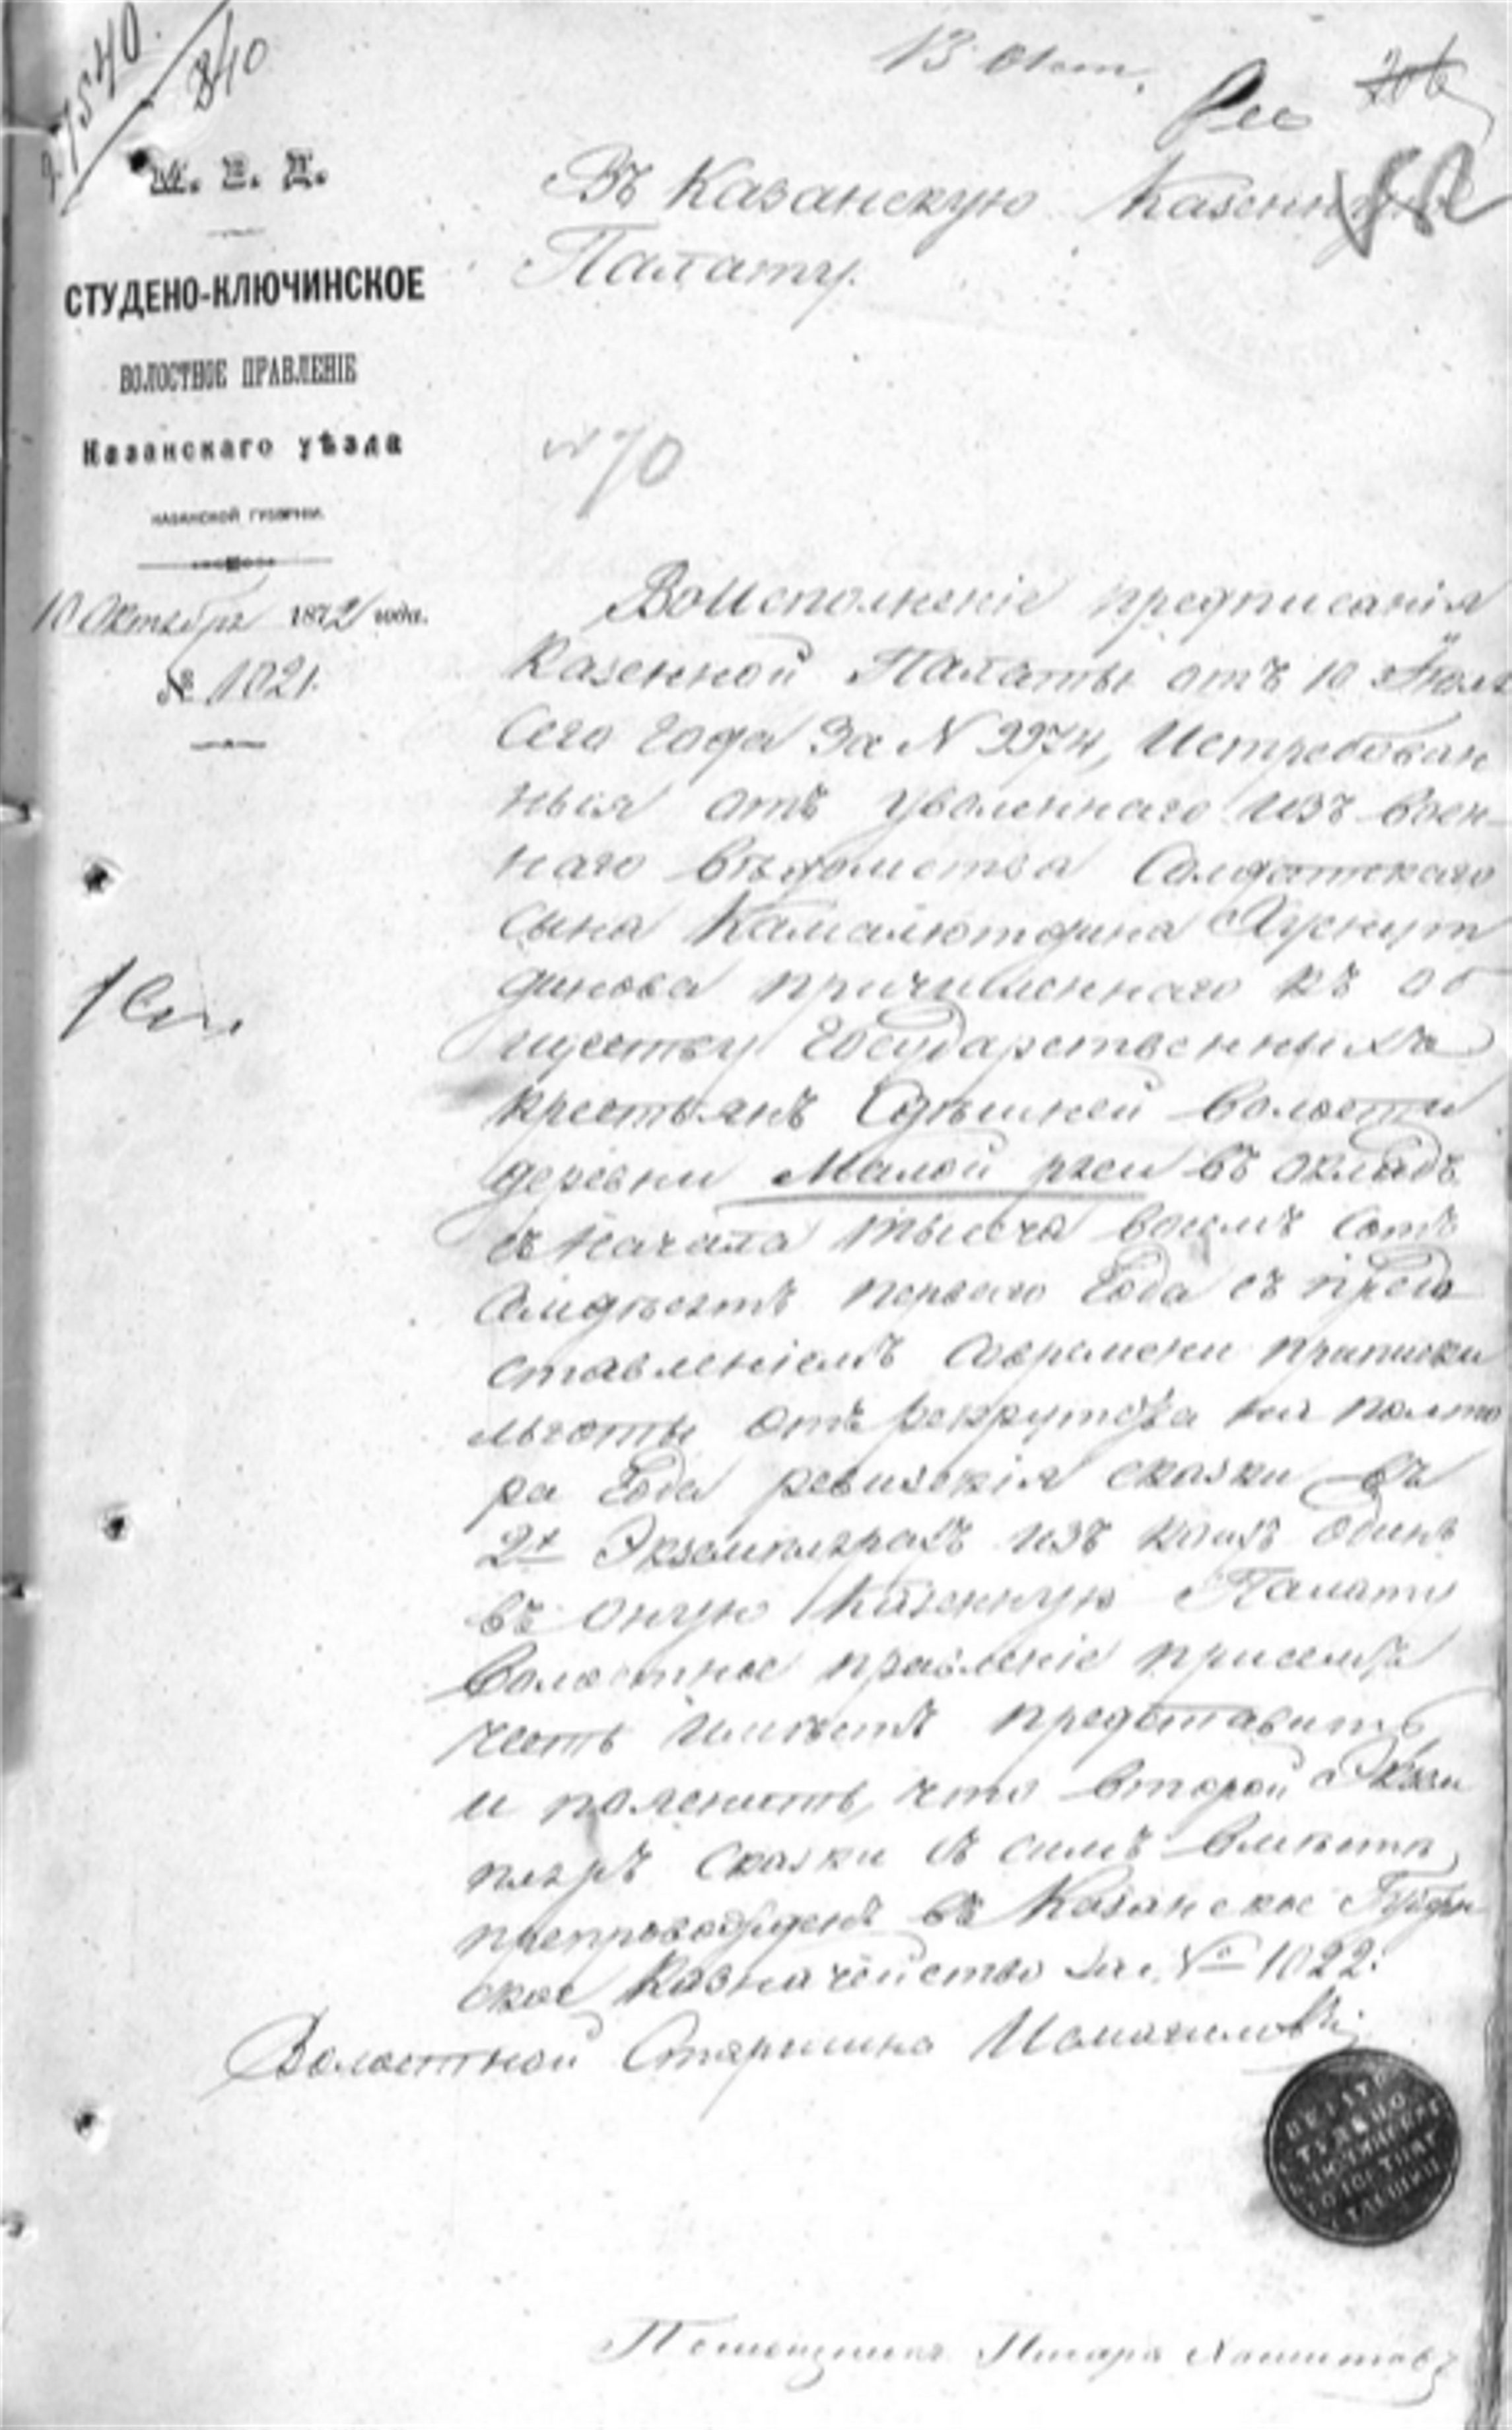 27540.
840
13 Окт.
М. В. Д.
Въ Казанскую Казенную
Палату.
СТУДЕНО-КЛЮЧИНСКОЕ
ВОЛОСТНОЕ ПРАВЛЕНІЕ
Казанскаго уѣзда
КАЗАНСКОЙ ГУБЕРНІИ.
N 70
10 Октября 1872 года.
№ 1021.
Воисполненіе предписанія
Казенной Палаты отъ 10 Іюля
Сего года За N 9974, Истребован
ныя отъ уволеннаго изъ воен-
наго вѣдомства Солдатскаго
сына Камалютдина Хуснут
динова причисленнаго къ об
ществу Государственныхъ
крестьянъ Здѣшней волости
деревни Малой реси въ окладъ
съ Начала тысяча восемъ сотъ
Семдѣсятъ перваго Года съ предо
ставленіемъ Современи приписки
льготы отъ рекрутства на полто
ра Года ревизскія сказки въ
2х Экземплярахъ изъ коихъ Одинъ
въ оную Казенную Палату
Волостное правленіе присемъ
честь имѣетъ представить
и пояснить, что второй Экзем
пляръ Сказки съ симъ вмѣстѣ
препровожденъ въ Казанское Губерн
ское Казначейство за № 1022.
Волостной Старшина Исмагиловъ
Помощникъ Писаря